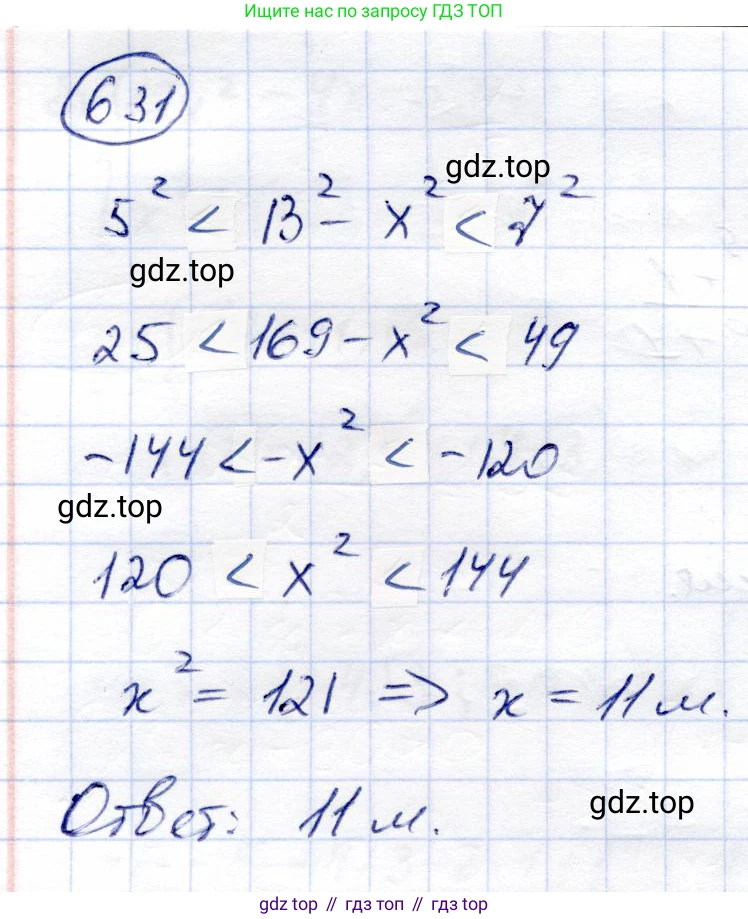 Ищите нас по запросу ГДЗ ТОП
631
gdz.top
5² < 13² - x² < 7²
gdz.top
25 < 169 - x² < 49
-144 < -x² < -120
gdz.top
120 < x² < 144
x² = 121 => x = 11 м.
gdz.top
Ответ: 11 м.
gdz top // гдз топ // gdz top